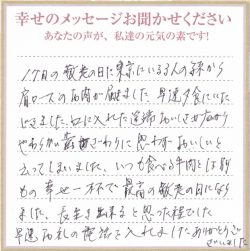 幸せのメッセージお聞かせください
あなたの声が、私達の元気の素です!
17日の敬老の日に東京にいる3人の孫から
肩ロースのお肉が届きました。早速夕食にいた
だきました。口に入れた途端おいしさが
やわらか 歯ざわりに思わず おいしいと
云ってしまいました。いつも食べる牛肉とは
もの 幸せ一杯で最高の敬老の日になり
ました。長生き出来ると思った程でした
早速お礼の電話を入れましたありがとうご
ざいました